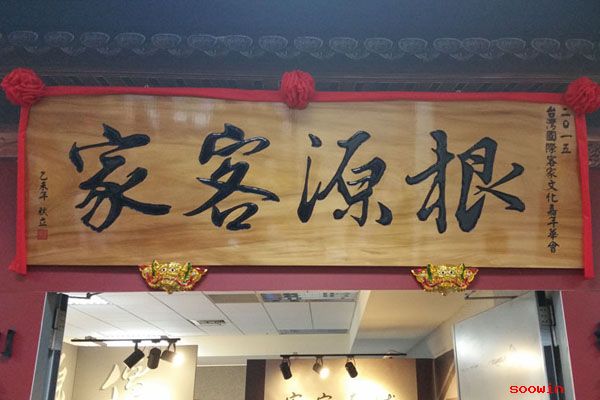 二〇一五
台灣國際客家文化嘉年華會
根源客家
乙未年 秋立
soowin